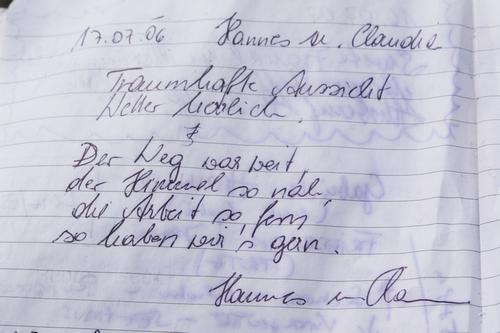 17.07.06 Hannes u. Claudia
Traumhafte Aussicht
Wetter herrlich.
Der Weg war weit,
der Himmel so nah,
die Arbeit so fern,
so haben wir's gern.
Hannes u